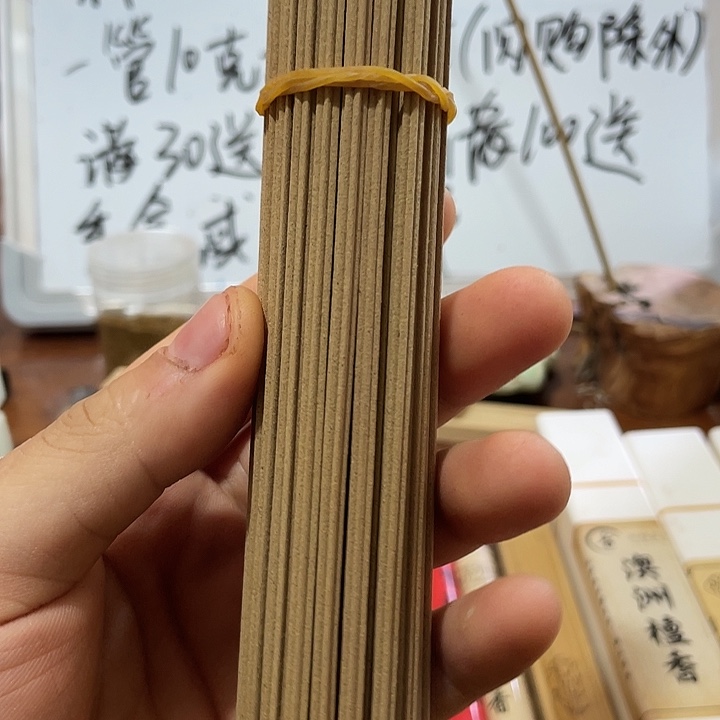 一管10克
(闪购除外)
满30送
散100送
减
澳洲檀香
香